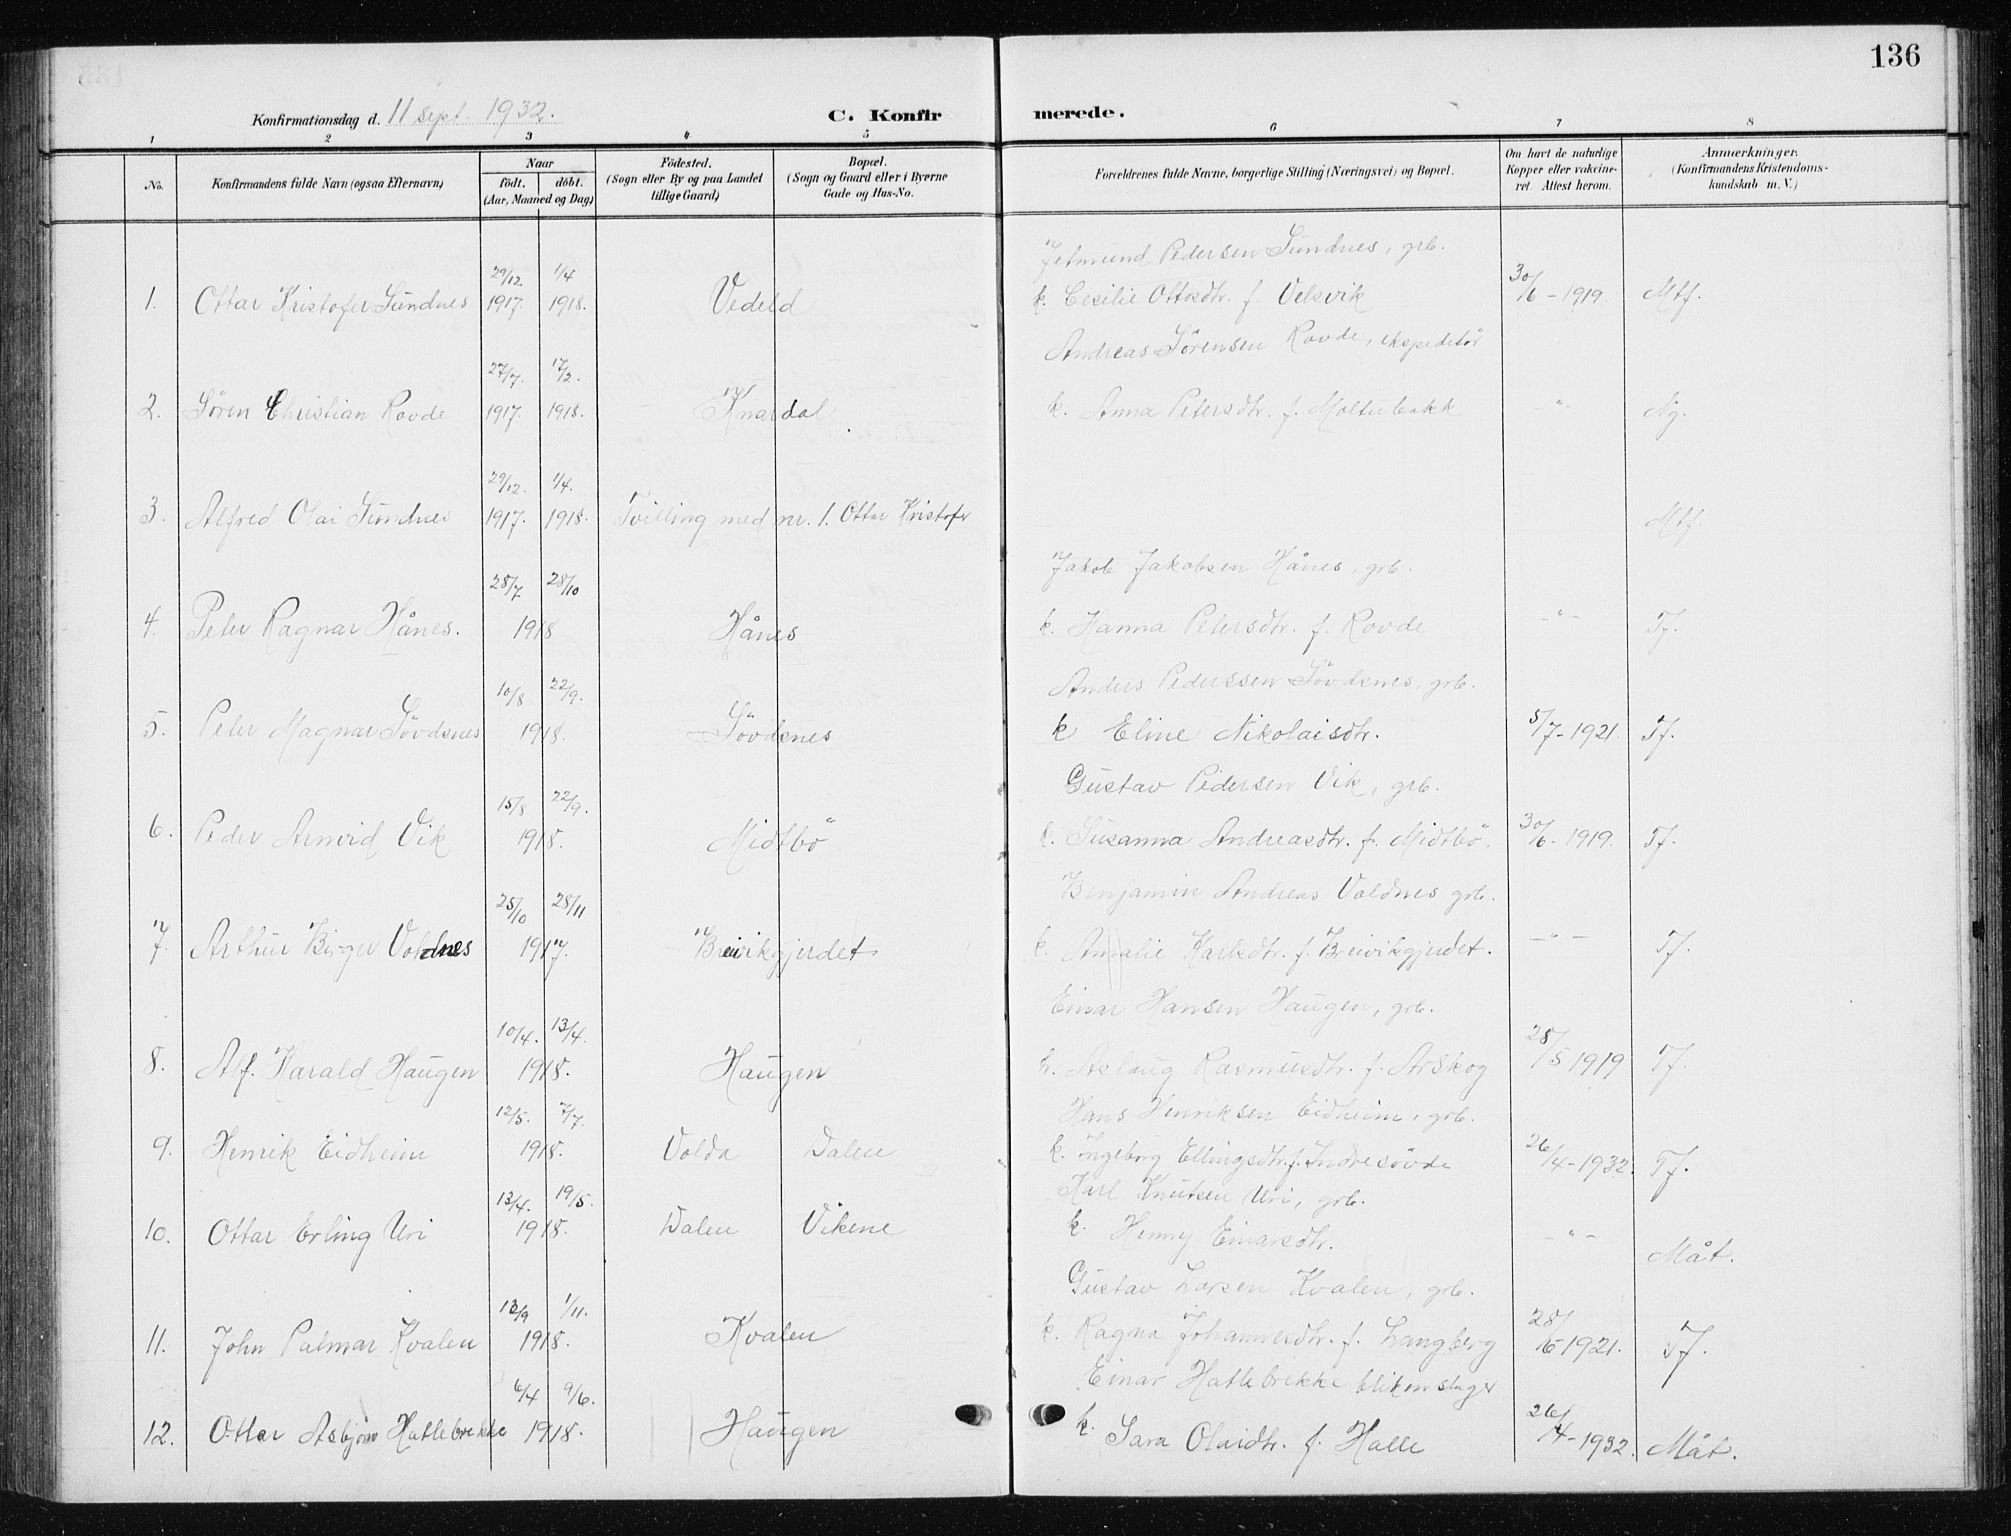 136
Konfirmationsdag d. 11 sept. 1932.
C. Konfirmerede.
1 2 3 4 5 6 7 8
No.
Konfirmandens fulde Navn (ogsaa Efternavn)
Naar
födt. döbt.
(Aar, Maaned og Dag)
Födested.
(Sogn eller By og paa Landet
tillige Gaard)
Bopæl.
(Sogn og Gaard eller i Byerne
Gade og Hus-No.
Forældrenes fulde Navne, borgerlige Stilling (Næringsvei) og Bopæl.
Om havt de naturlige
Kopper eller vakcine-
ret Attest herom.
Anmærkninger.
(Konfirmandens Kristendoms-
kundskab m. V.)
Jetmund Pedersen Sundnes, grb.
29/12 1/4
1. Ottar Kristofer Sundnes 1917. 1918. Vedeld k. Cecilie Ottosdtr. f. Velsvik 30/6 - 1919. Mtf.
Andreas Sörensen Rovde, ekspeditör
27/7. 17/2.
2. Sören Christian Rovde 1917. 1918. Knardal k. Anna Petersdtr. f. Moltubakk -"- Ng.
29/12. 1/4.
3. Alfred Olai Sundnes 1917. 1918. Tvilling med nr. 1. Ottar Kristofer Mtf.
Jakob Jakobsen Hånes, grb.
28/7 28/10
4. Peter Ragnar Hånes. 1918 Hånes k. Hanna Petersdtr. f. Rovde -"- Tf.
Anders Pederssen Sövdsnes, grb.
10/8 22/9.
5. Peter Magnar Sövdsnes 1918. Sövdsnes k Eline Nikolaisdtr. 5/7 - 1921. Tf.
Gustav Pedersen Vik, grb.
15/8 22/9.
6. Peder Arnvid Vik 1918. Midtbö k. Susanna Andreasdtr. f. Midtbö. 30/6 - 1919. Tf.
Benjamin Andreas Voldnes grb.
25/10 28/11
7. Arthur Birger Voldnes 1917. Breivikgjerdet k. Amalie Karlsdtr. f. Breivikgjerdet. -"- Tf.
Einar Hansen Haugen, grb.
10/4. 13/4.
8. Alf. Harald Haugen 1918. Haugen k. Aslaug Rasmusdtr. f. Årskog 28/5 1919 Tf.
Hans Henriksen Eidheim, grb.
12/5. 7/7.
9. Henrik Eidheim 1918. Volda Dalen k. Ingeborg Ellingsdtr. f. Indresövde 26/4 - 1932. Tf.
Karl Knutsen Uri, grb.
13/4. 19/5.
10. Ottar Erling Uri 1918. Dalen Vikene k. Henny Einarsdtr. -"- Måt.
Gustav Larsen Kvalen, grb.
13/9 1/11.
11. John Palmar Kvalen 1918. Kvalen k. Ragna Johannesdtr. f. Langberg 28/6 1921. Tf.
Einar Hatlebrekke blikenslager
6/4 9/6.
12. Ottar Asbjörn Hatlebrekke 1918. Haugen k. Sara Olaidtr. f. Halle 26/4 - 1932. Måt.